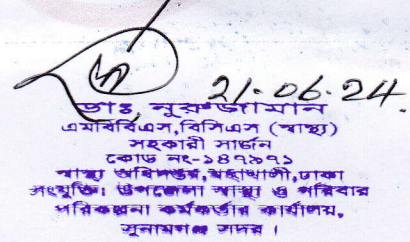 21.06.24.
ডাঃ নুরুজামান
এমবিবিএস,বিসিএস (স্বাস্থ্য)
সহকারী সার্জন
কোড নং-১৪৭৯৭১
স্বাস্থ্য অধিদপ্তর,মহাখালী,ঢাকা
সংযুক্তি: উপজেলা স্বাস্থ্য ও পরিবার
পরিকল্পনা কর্মকর্তার কার্যালয়,
সুনামগঞ্জ সদর।